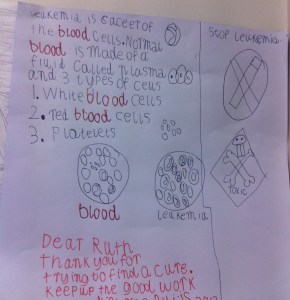 Leukemia is a caceer of
the blood cells. Normal
blood is made of a
fluid called plasma
and 3 types of cells
1. White blood cells
2. red blood cells
3. Platelets
blood
Leukemia
STOP Leukemia
toxic
Dear Ruth
thank you for
trying to find a cure.
Keep up the good work